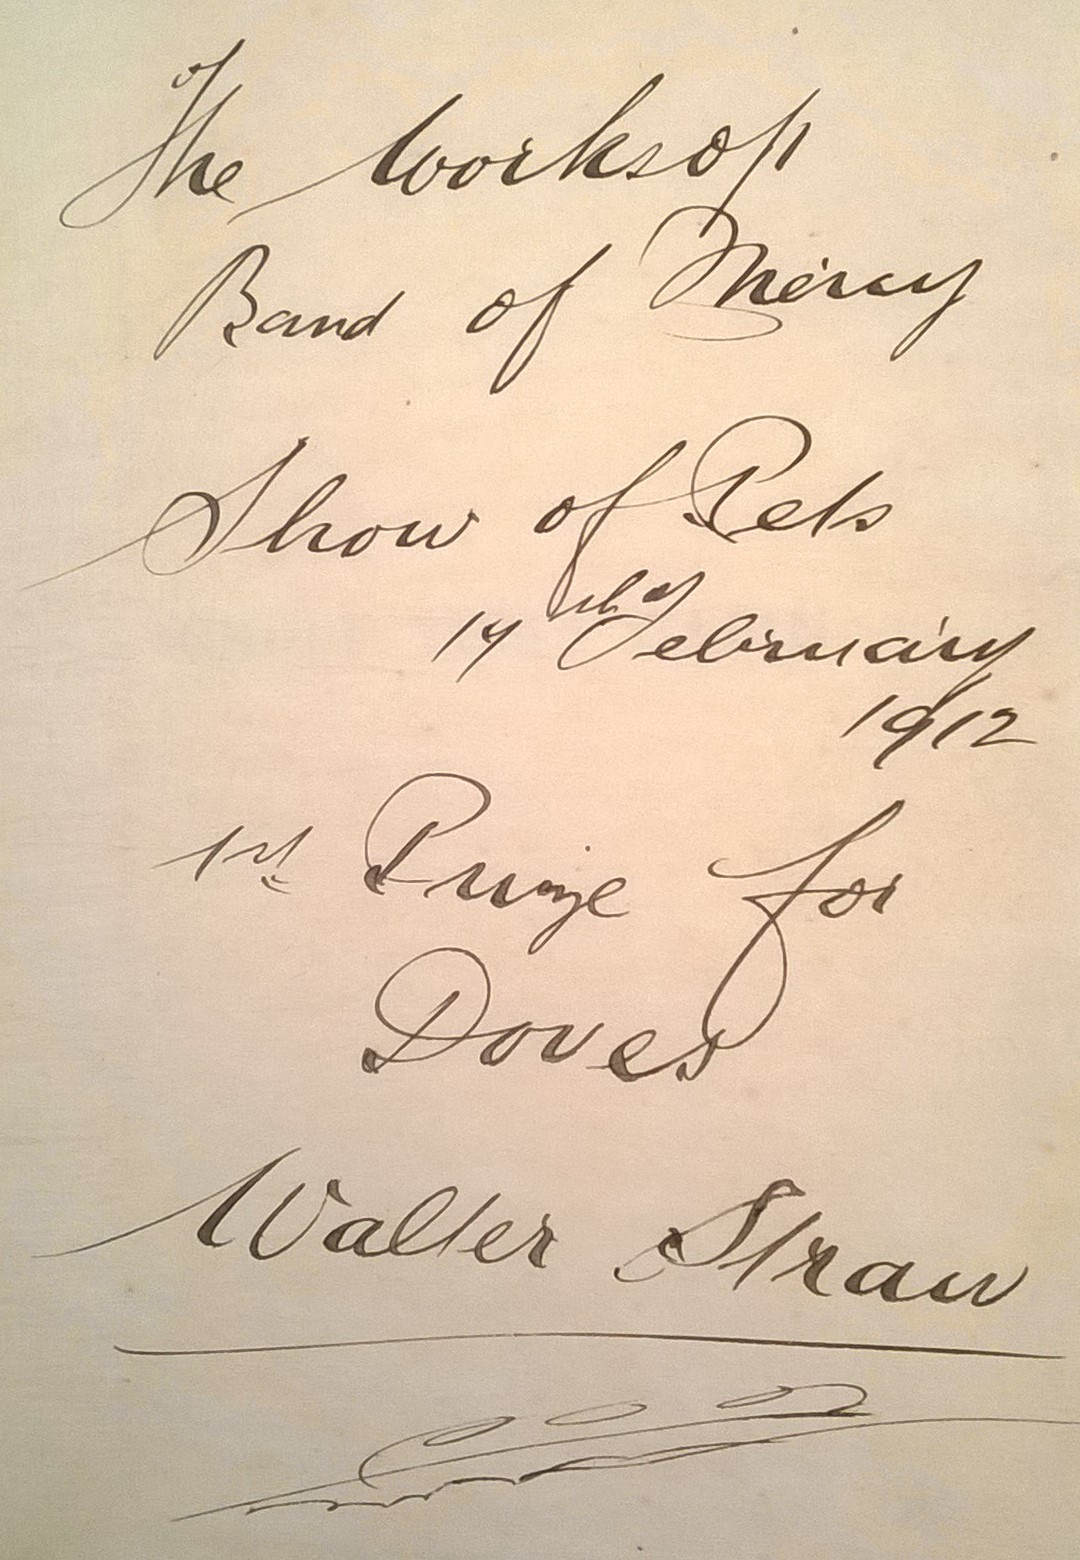 The Worksop
Band of Mercy
Show of Pets
14th of February
1912
1st Prize for
Doves
Walter Straw